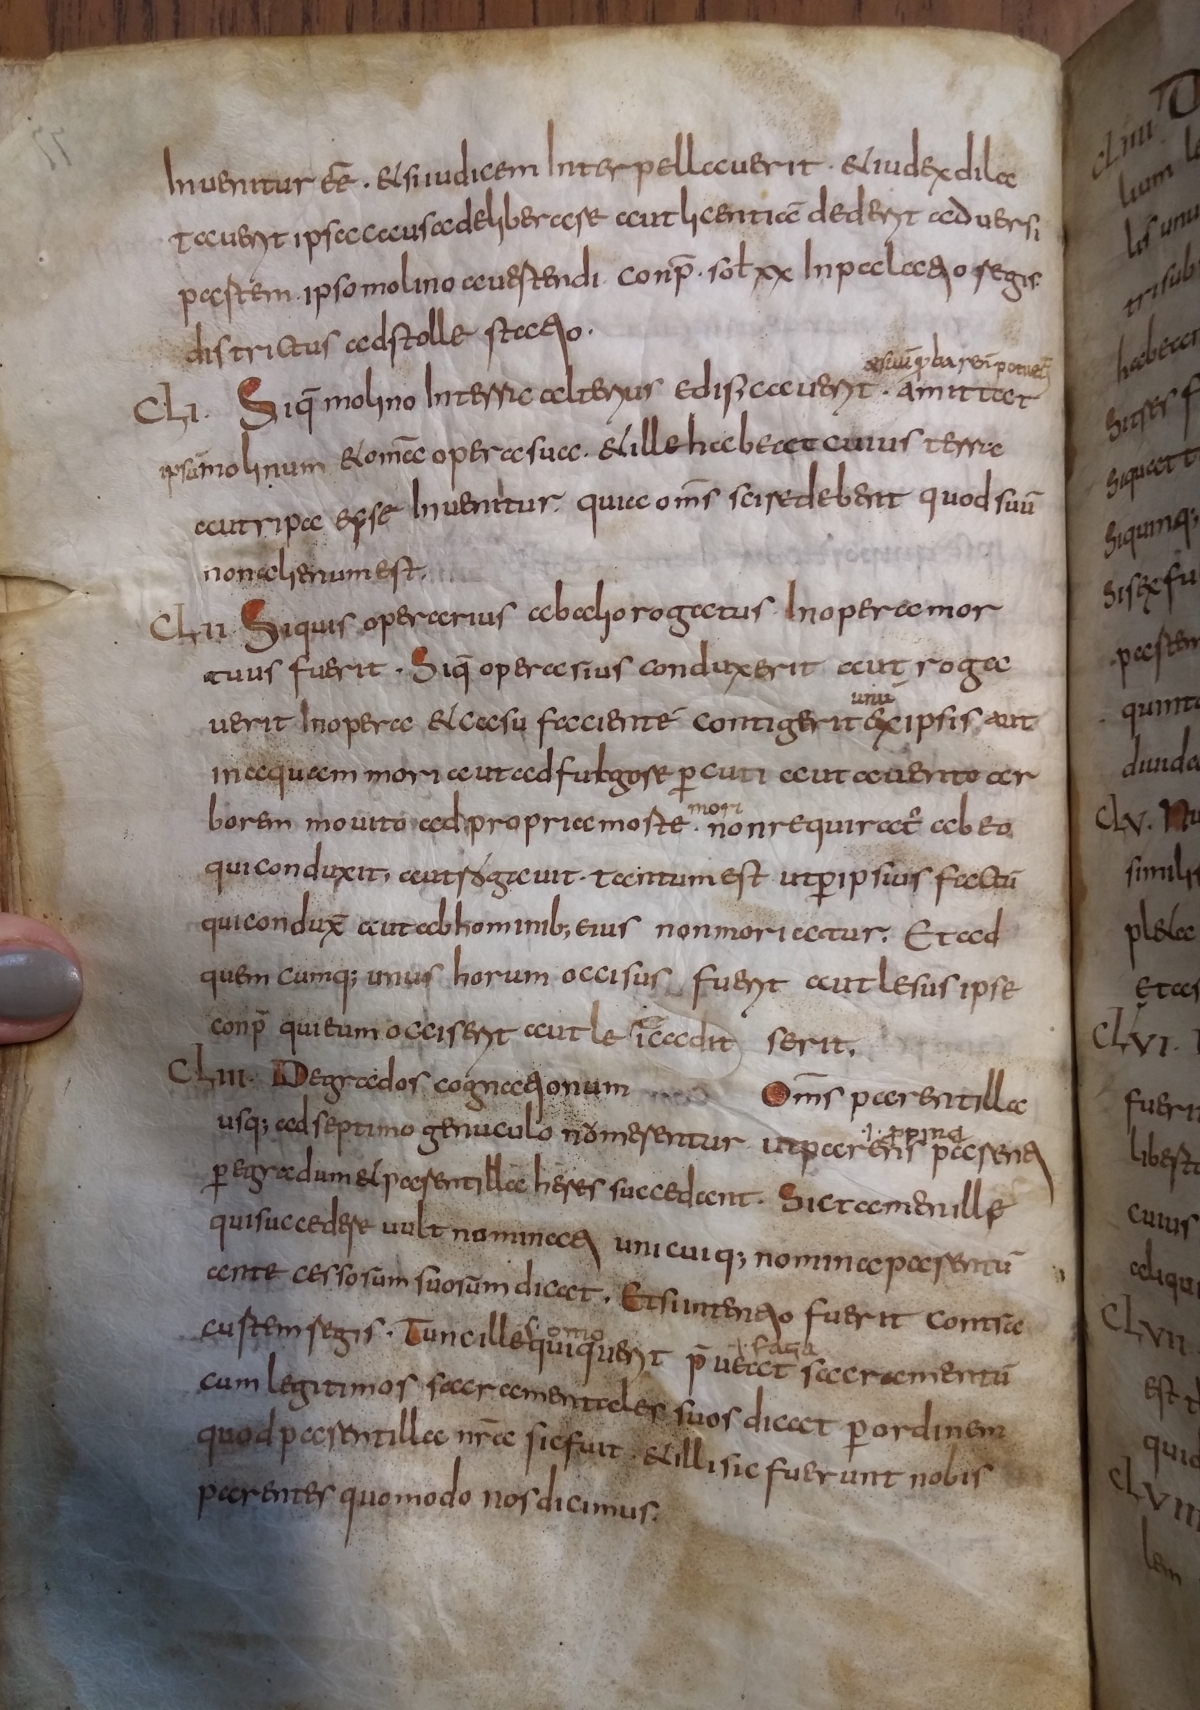 Inuenitur eē. et si iudicem Inter pellauerit. et iudex dila
tauerit ipsa causa deliberare aut licentiā dederit aduersi
partem. ipso molino auertendi. conp̄. sol xx In palatio regis
districtus ad stolle statio.
CLI. Siq̄ molino In terra alterius edificauerit. amittat
ipsū molinum et omē opera sua. et ille habeat cuius terra
aut ripa esse Inuenitur. quia om̄s scire debent quod suū
non alienum est.
CLII. Siquis operarius ab alio rogatus In opera mor
tuus fuerit. Siq̄ operarius conduxerit aut roga
unū
uerit In opera et casu faciente contigerit ex ipsis aut
in aquam mori aut ad fulgore p̱cuti aut a uento ar
mori
borem mouito ad propria morte. non requirat̄ ab eo
qui conduxit, aut rogauit. tantum est ut p̱ ipsius factū
qui condux̄ aut ab hominib; eius non moriatur. Et ad
quem cumq; unus horum occisus fuerit aut lesus ipse
conp̄ qui eum occiserit aut le serit.
CLIII. De grados cognationum Om̄s parentilla
usq; ad septimo genuculo nomerentur ut parens parenti
p̱ egradum et parentilla heres succedant. Sic tamen ille
qui succedere uult nominati uni cuiq; nomina parentū
ante cessorum suorum dicat. Et si intentio fuerit contra
custem regis. Tunc ille qui querit p̄ueat sacramentū
cum legitimos sacramentales suos dicat p̱ ordinem
quod parentilla nr̄a sic fuit. et illi sic fuerunt nobis
parentes quomodo nos dicimus.